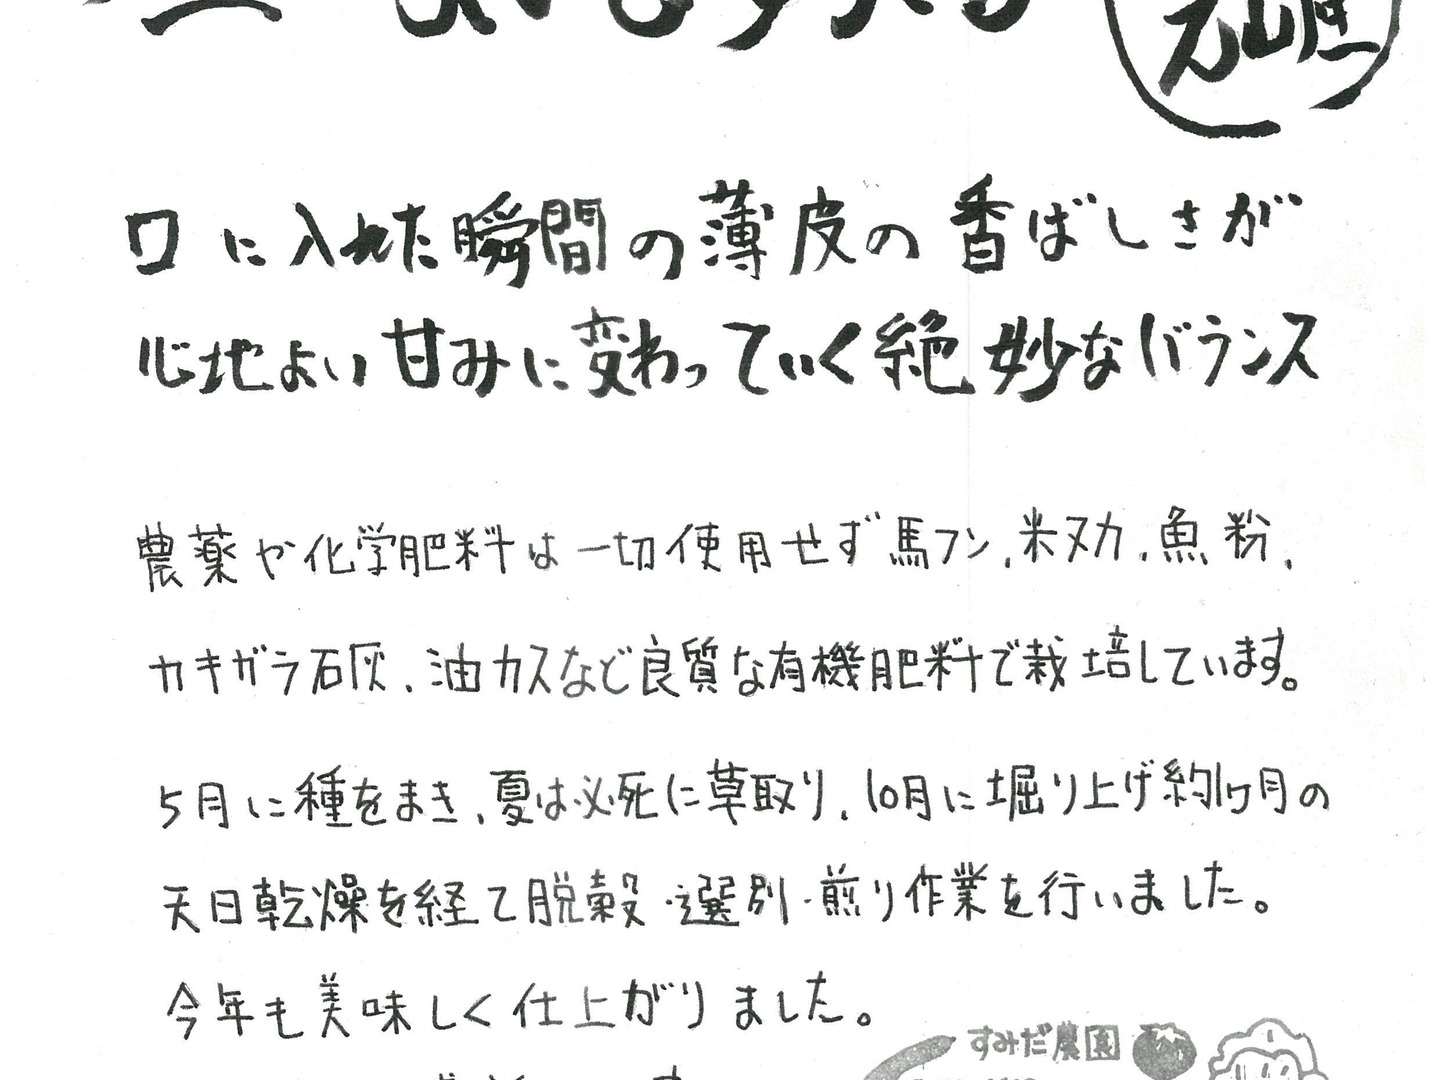 口に入れた瞬間の薄皮の香ばしさが
心地よい甘みに変わっていく絶妙なバランス
農薬や化学肥料は一切使用せず馬フン、米ヌカ、魚粉、
カキガラ石灰、油カスなど良質な有機肥料で栽培しています。
5月に種をまき、夏は必死に草取り、10月に堀り上げ約1ヶ月の
天日乾燥を経て脱穀・選別・煎り作業を行いました。
今年も美味しく仕上がりました。
すみだ農園